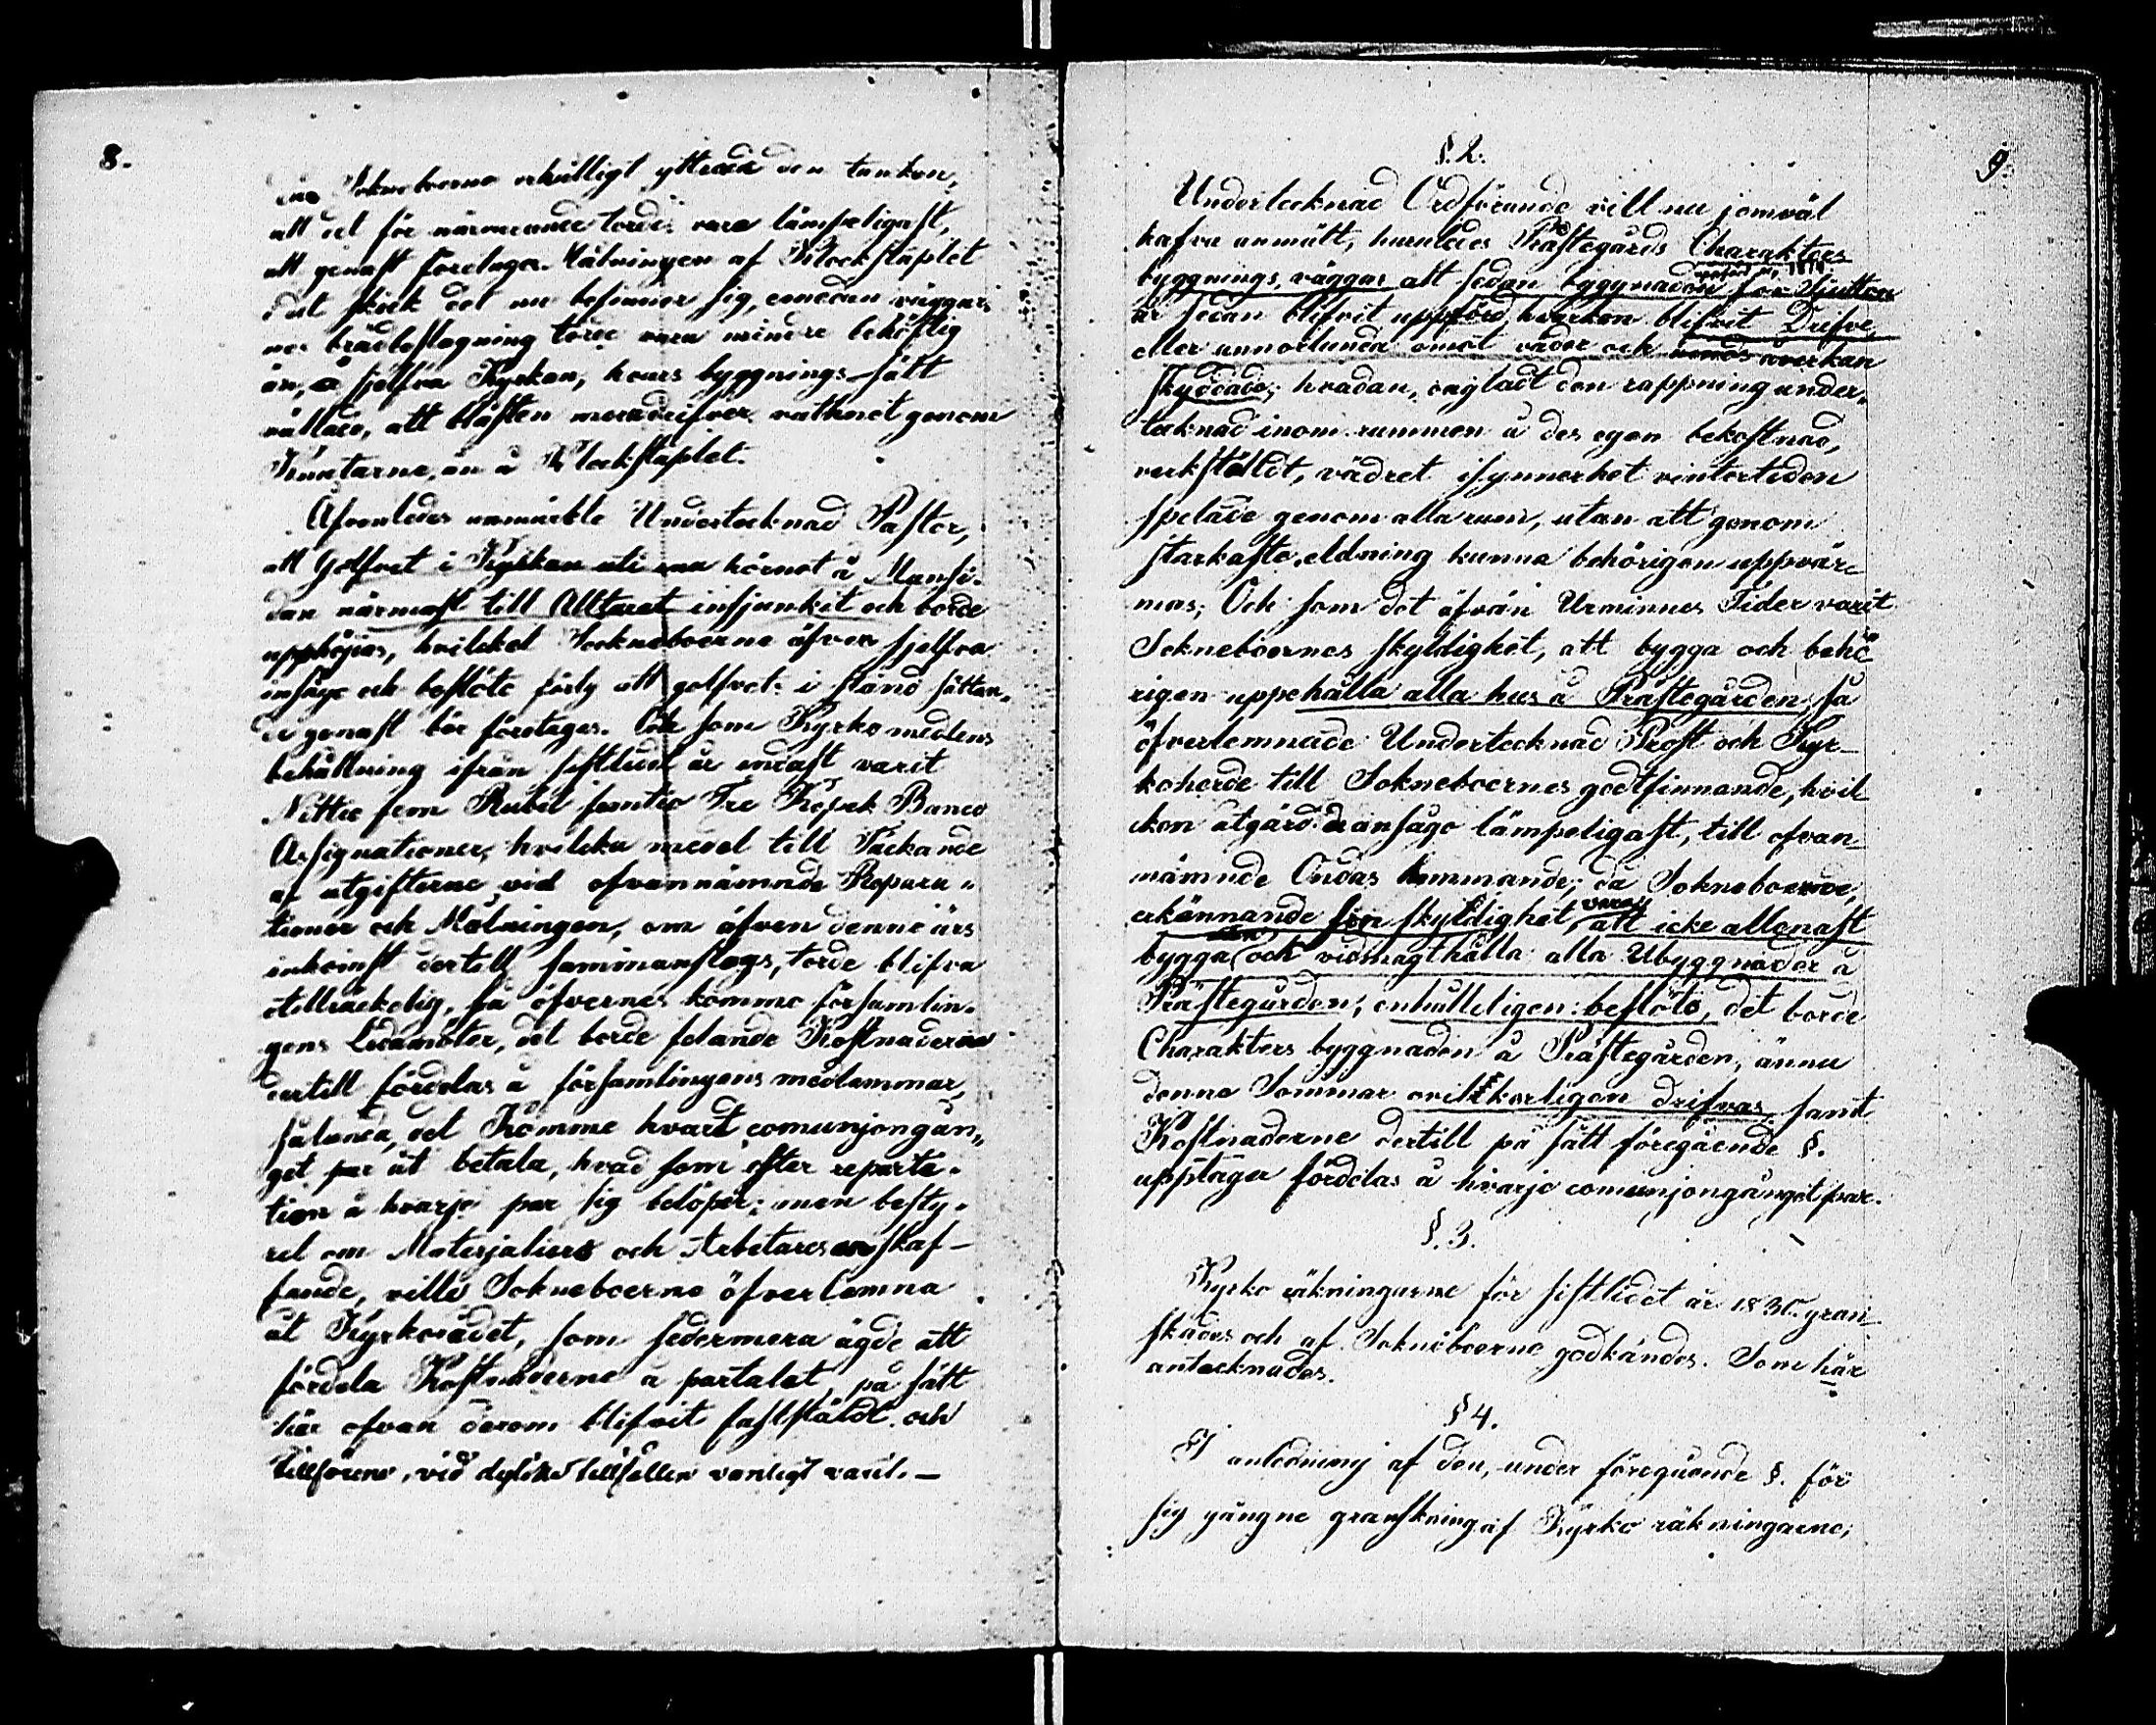 8.
Sokneboerne enhälligt yttrade den tanken,
att det för närvarande torde vara lämpeligast,
att genast företaga Målningen af Klockstaplet
i det skick det nu befinner sig, emedan väggar-
nes brädbeslagning torde vara mindre behöflig
än, å sjelfva Kyrkan, hvars byggnings-sätt
vållade, att blåsten mera drifver vattnet genom
Knutarne, än å Klockstaplet.
Äfvenledes anmärkte Undertecknad Pastor,
att Golfvet i Kyrkan uti ena hörnet å Mansi-
dan närmast till Alltaret insjunkit och borde
upphöjas, hvilcket Sockneboerne äfven sjelfva
insågo och beslöto förty att golfvets i stånd sättan-
de genast bör företagas. Och som Kyrko medlens
behållning ifrån sistledit år endast varit
Nittio fem Rubel femtio Tre Kopek Banco
Assignationer, hvilcka medel till Täckande
af utgifterne vid ofvannämnde Repara-
tioner och Målningen, om äfven denne års
inkomst dertill sammanslogs, torde blifva
otillräckelig, så öfverens kommo församlin-
gens Ledamöter, det borde felande Kostnaderne
dertill fördelas å församlingens medlemmar,
sålunda, det Komme hvart comunjongån-
get par åt betala, hvad som efter reparti-
tion å hvarje par sig belöper; men besty-
rel om Materjaliers och Arbetares anskaf-
fande, ville Sokneboerne öfverlemna
åt Kyrkorådet, som sedermera ägde att
fördela Kostnaderne å partalet, på sätt
här ofvan derom blifvit fastställdt och
tillförene, vid dylika tillfällen vanligt varit. —
9.
§. 2.
Undertecknad Ordförande vill nu jemväl
hafva anmält, huruledes Prästegårds Charakters
byggnings, väggar alt sedan byggnaden för Sjutton
1814
år sedan blifvit uppförd, hvarken blifvit Drifve,
eller annorlunda emot väder och åverkan
skyddade; hvadan, oagtadt den rappning under-
tecknad inom rummen å des egen bekostnad,
verkställdt, vädret isynnerhet vintertiden
spelade genom alla rum, utan att genom
starkaste eldning kunna behörigen uppvär-
mas; Och som det äfvän Urminnes Tider varit
Sokneboernes skyldighet, att bygga och behö-
rigen uppehålla alla hus å Prästegården, så
öfverlemnade Undertecknad Prost och Kyr-
koherde till Sokneboernes godtfinnande, hvil-
cken åtgärd de ansågo lämpeligast, till ofvan-
nämnde Ändas kommande; då Sokneboerne,
erkännande sin skyldighet vara, att icke allenast
bygga, och vidmagthålla alla Åbyggnader å
Prästegården; enhälleligen beslöto, det borde
Charakters byggnaden å Prästegården, ännu
denne Sommar ovilkorligen drifvas, samt
Kostnaderne dertill på sätt föregående §.
upptager fördelas å hvarje comunjongånget par.
§. 3.
Kyrko räkningarne för sistledet år 1830. gran-
skades och af Sokneboerne godkändes. Som här
antecknades.
§ 4.
I anledning af den, under föregående §. för
sig gångne granskning af Kyrko räkningarne;